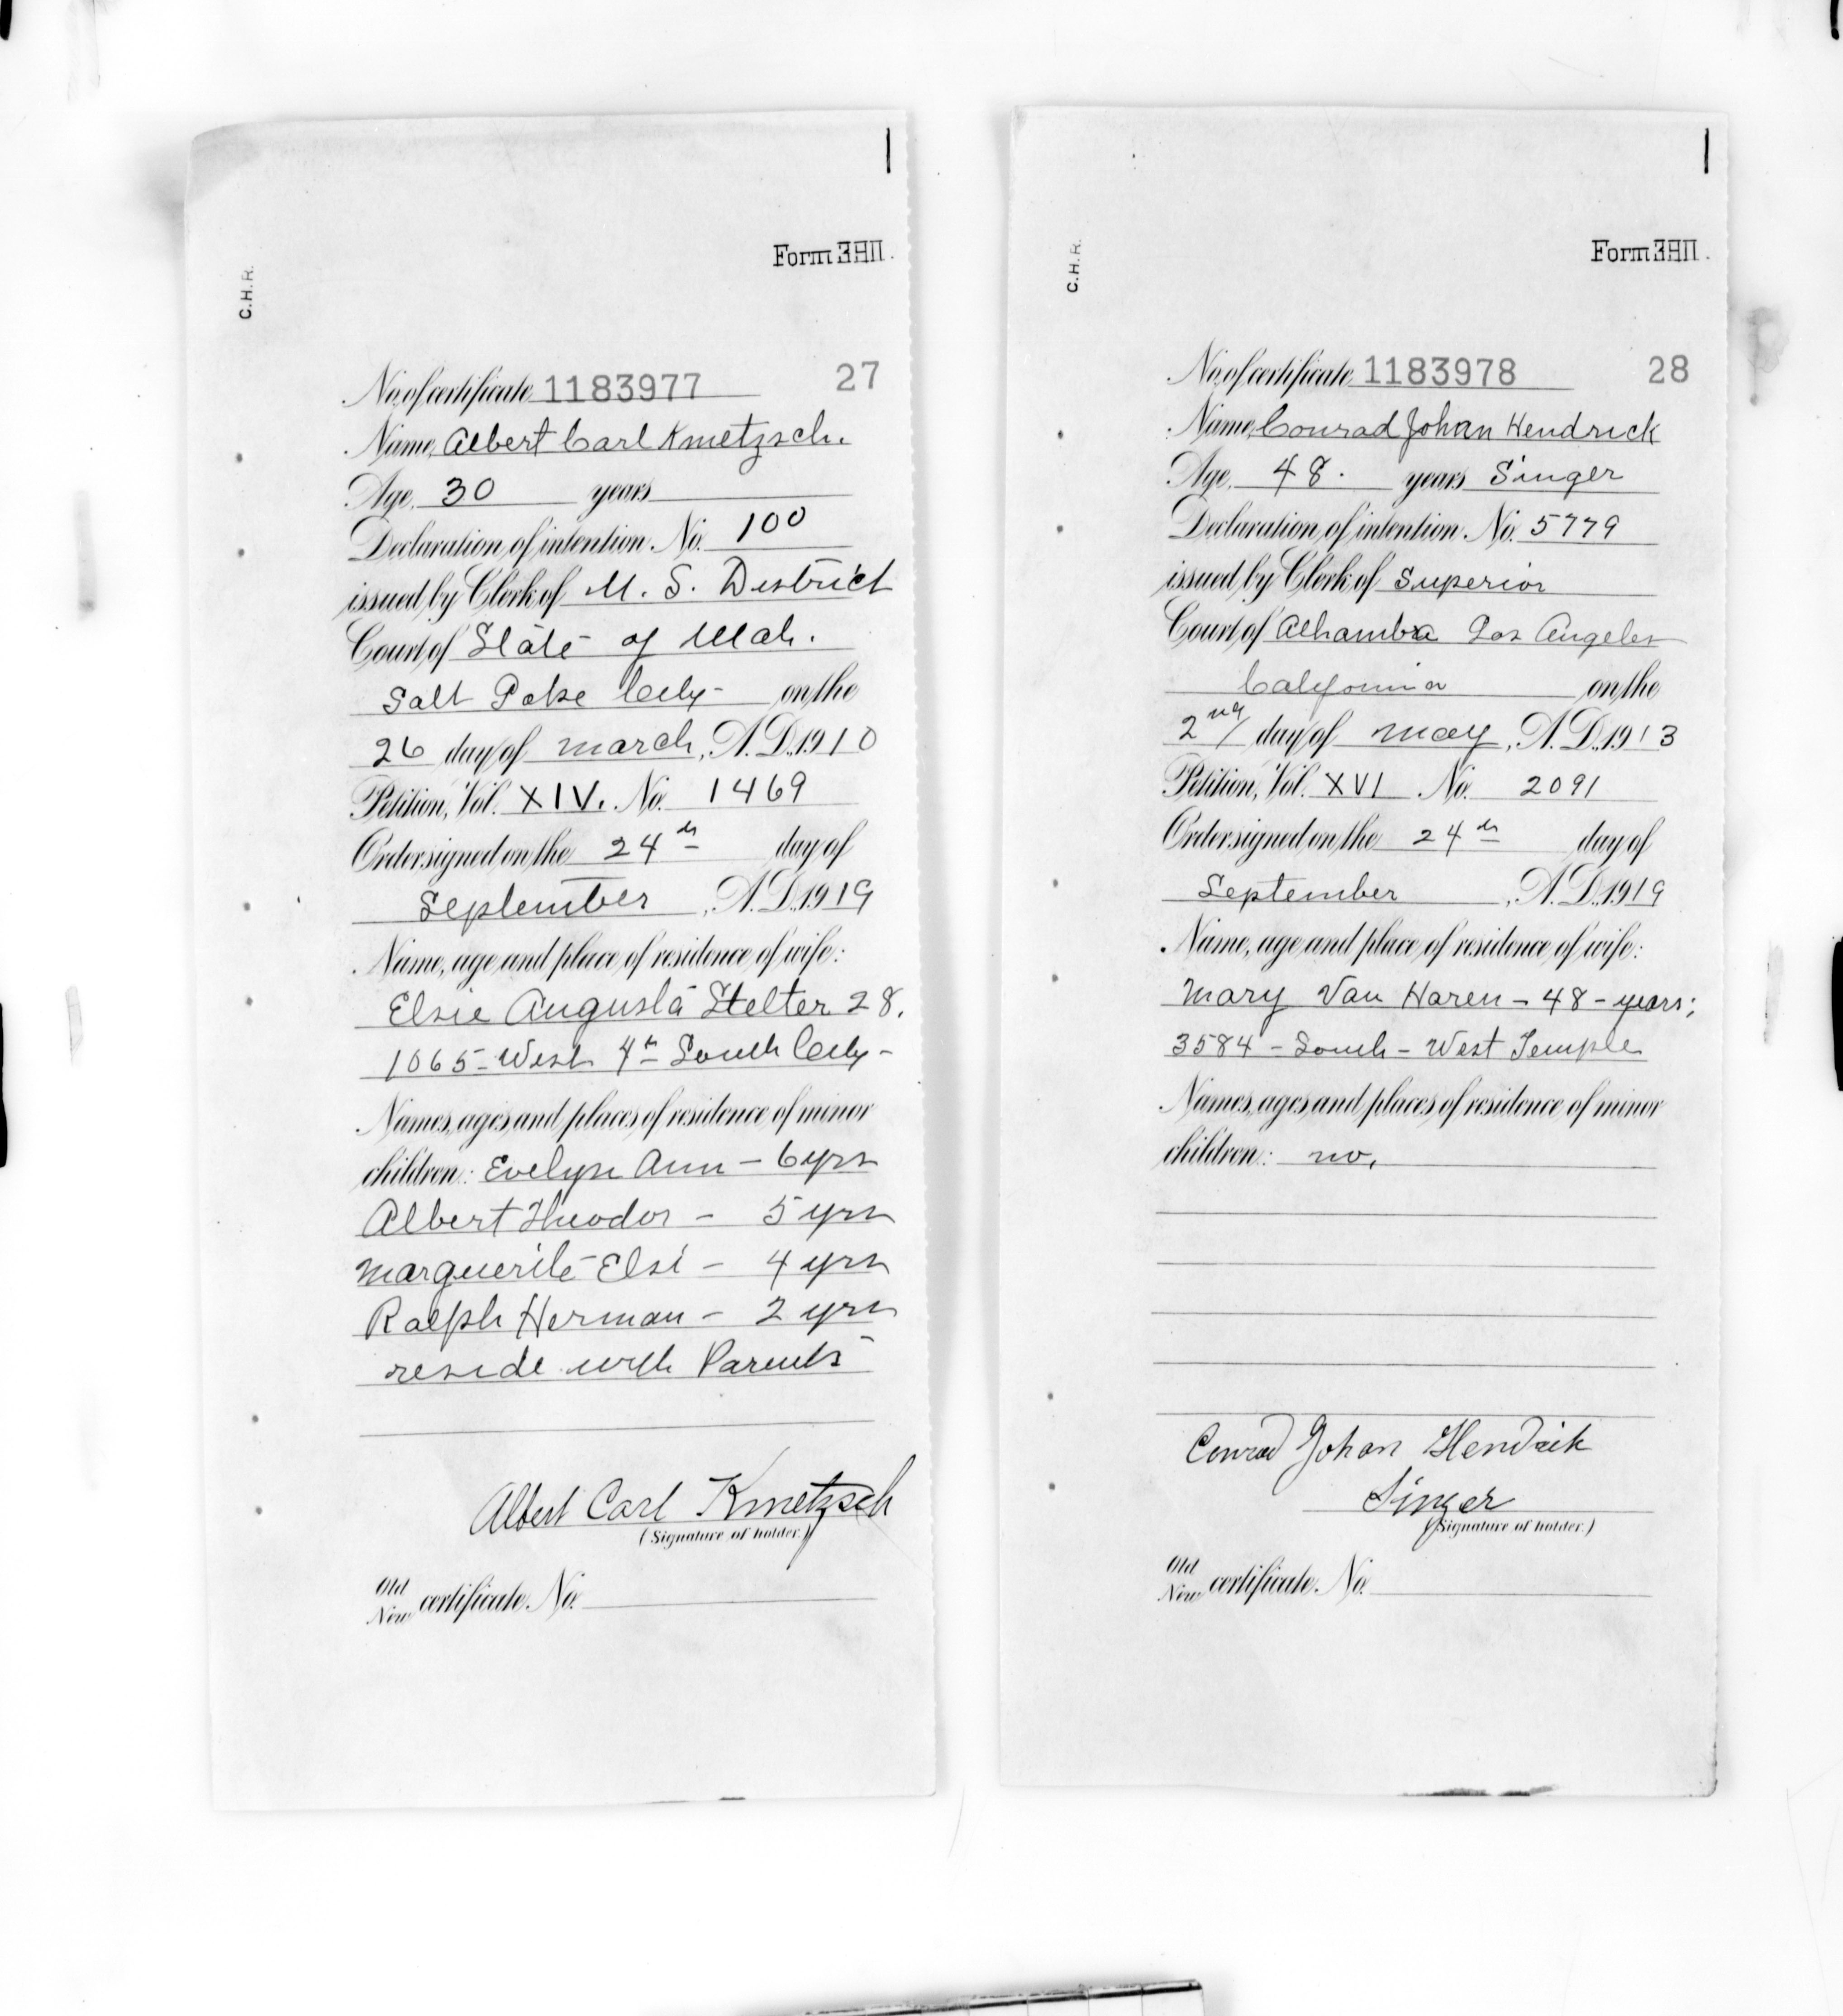 C.H.R.
Form 380.
No. of certificate 1183977 27
Name, Albert Carl Kmetzsch.
Age, 30 years
Declaration of intention No. 100
issued by Clerk of U. S. District
Court of State of Utah.
Salt Lake City on the
26 day of March, A.D. 1910
Petition, Vol. XIV. No. 1469
Order signed on the 24th day of
September, A.D. 1919
Name, age and place of residence of wife:
Elsie Augusta Stelter 28.
1065 - West 4th South City -
Names, ages and places of residence of minor
children: Evelyn Ann - 6 yrs
Albert Theodor - 5 yrs
Marguerite Elsi - 4 yrs
Ralph Herman - 2 yrs
reside with Parents
Albert Carl Kmetzsch
(Signature of holder.)
Old
New certificate No.
C.H.R.
Form 380.
No. of certificate 1183978 28
Name, Conrad Johan Hendrick
Age, 48. years Singer
Declaration of intention No. 5779
issued by Clerk of Superior
Court of Alhambra Los Angeles
California on the
2nd day of May, A.D. 1913
Petition, Vol. XVI No. 2091
Order signed on the 24th day of
September, A.D. 1919
Name, age and place of residence of wife:
Mary Van Haren - 48 - years;
3584 - South - West Temple
Names, ages and places of residence of minor
children: no.
Conrad Johan Hendrik
Singer
(Signature of holder.)
Old
New certificate No.